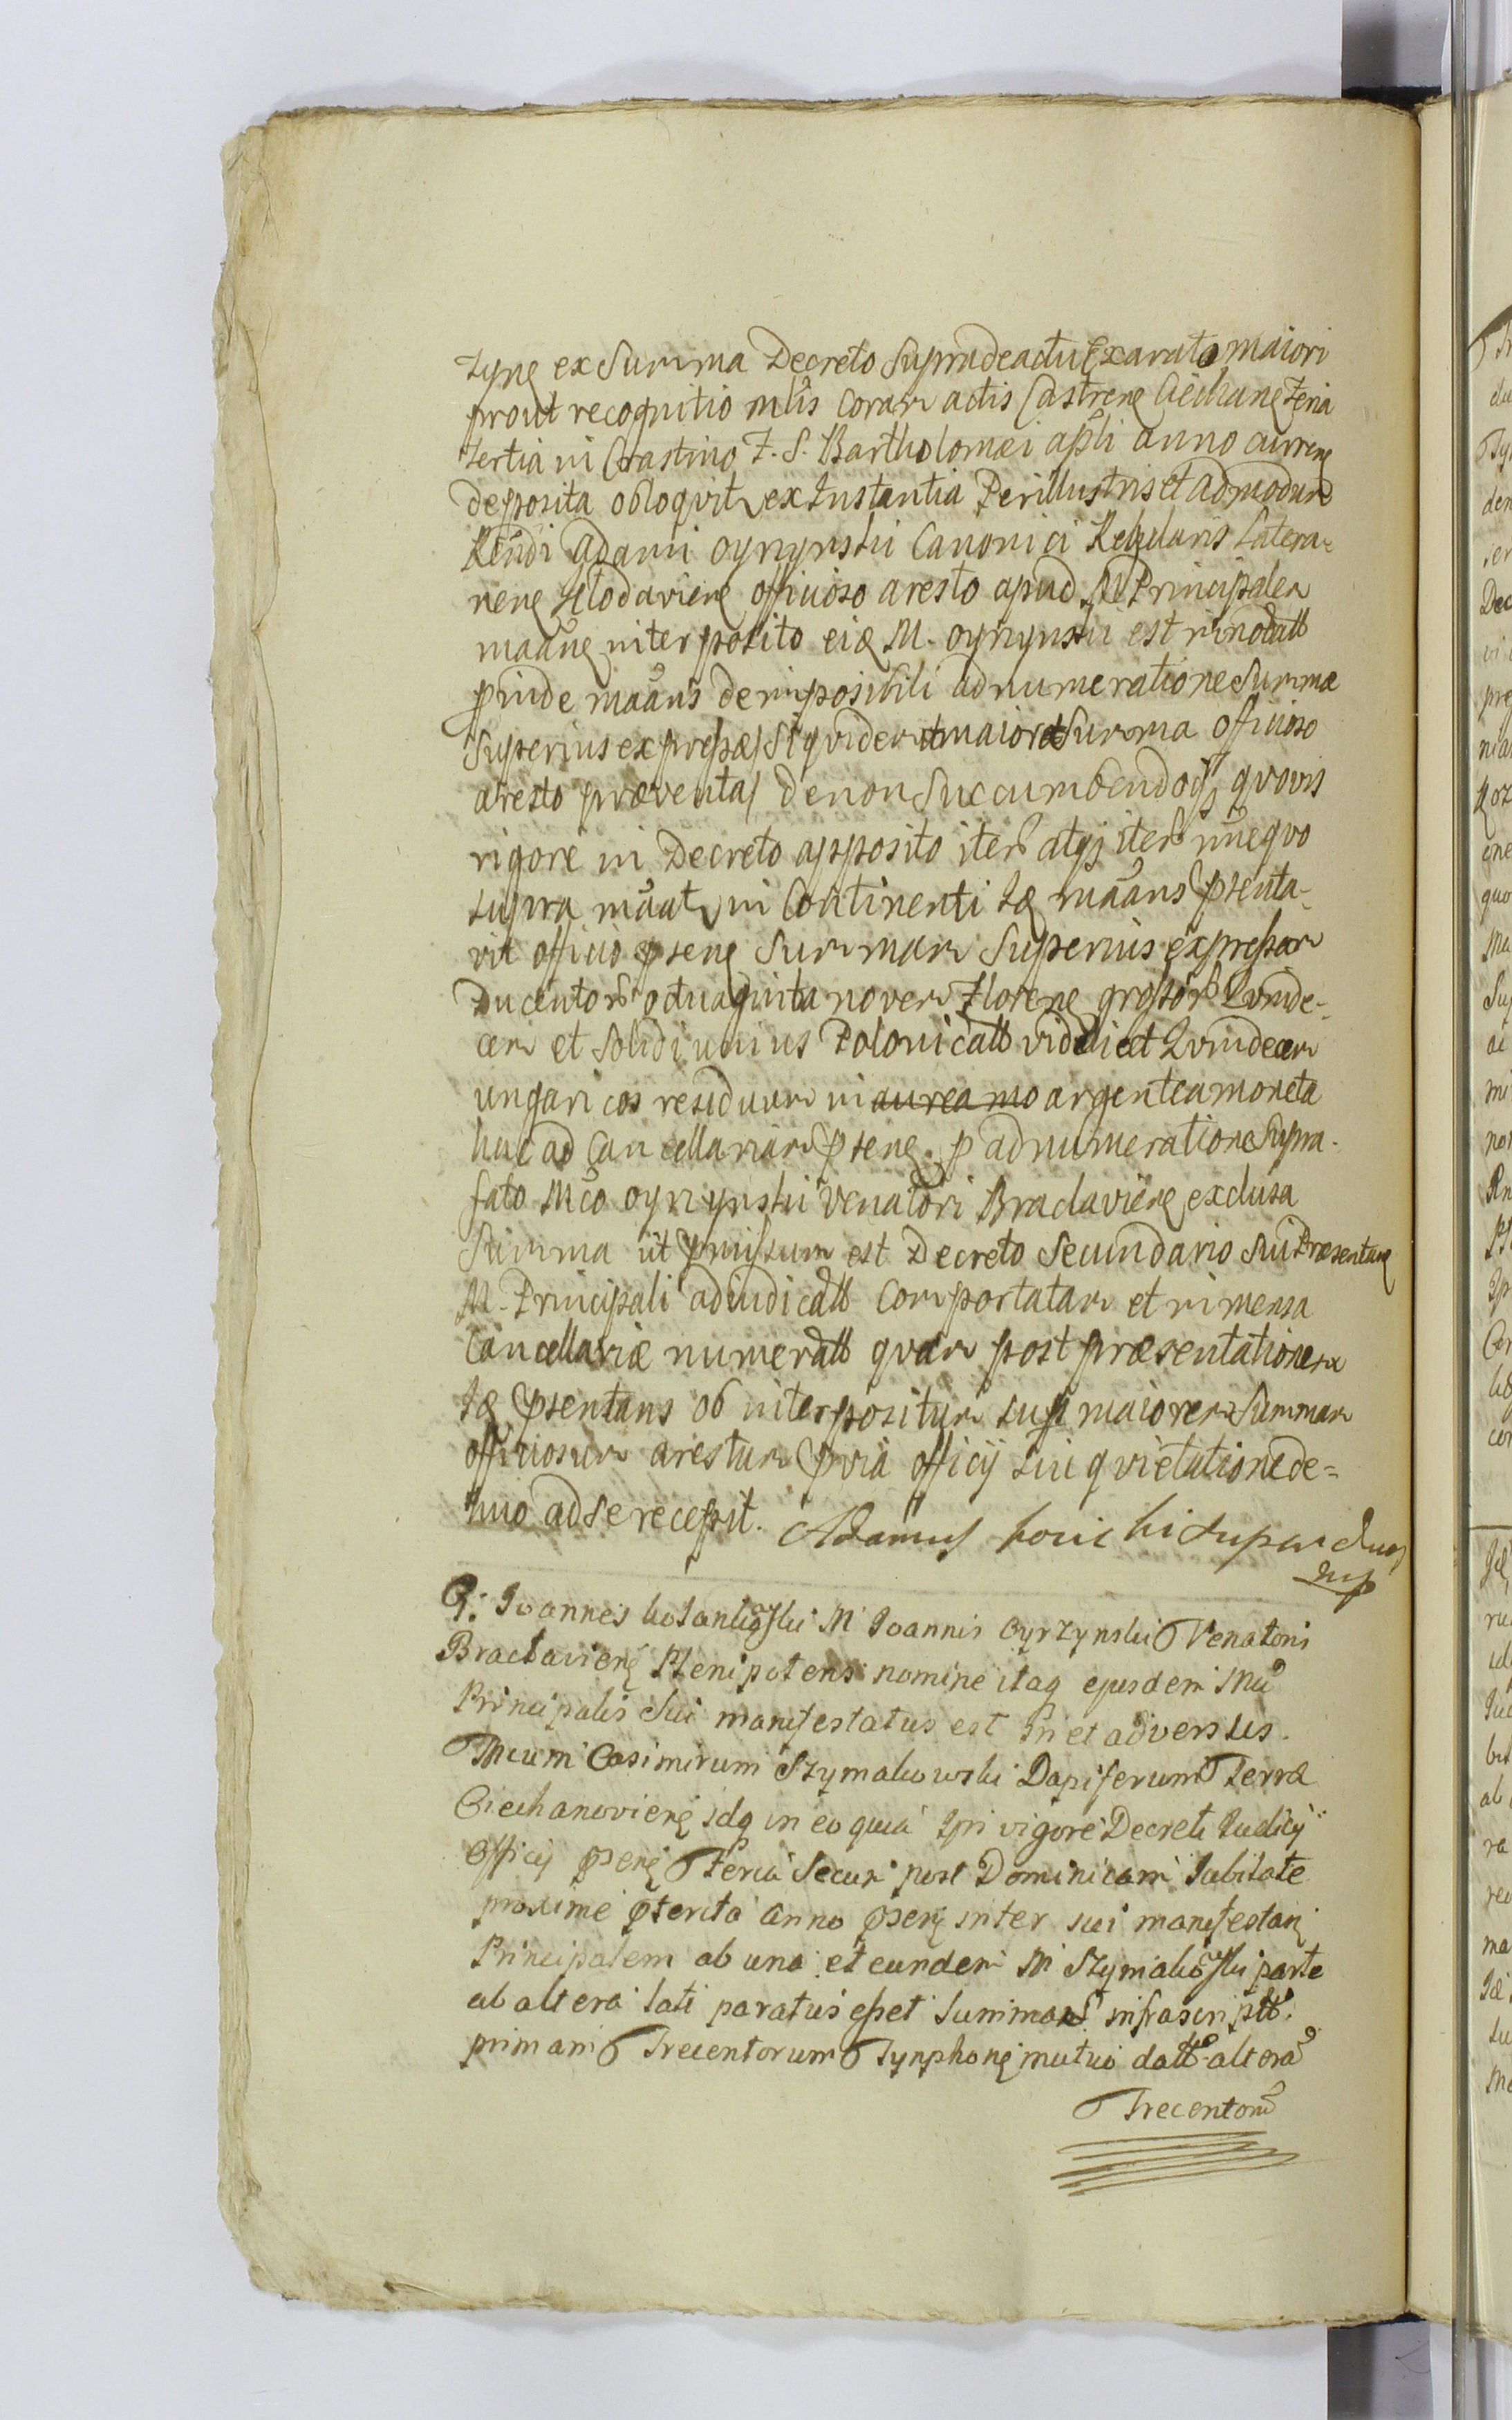 tyne ex Summa Decreto Supradeactu Exarato maiori
prout recognitio mlis Coram actis Castrene Ciechane Feria
tertia in Crastino F. S. Bartholomæi apli anno currene
deposita obloqvitr ex Instantia Perillustris et Admodum
Rendi Adami oyrzynski Canonici Regularis Latera-
nene officioso aresto apud M Principalem
maane interposito eiq M. oyrzynski est innodatt
pinde maans de impositili adnumeratione Summæ
Superius expressæ Siqvidem maiore Summa officioso
aresto præventa de non Succumbendoq qvovis
rigore in Decreto apposito iter atq iter mneqvo
supra maatr in Continenti Iq maans psenta-
vit officio psene Summam Superius expressam
Ducentor octuaginta novem Florene grossor Qvinde-
cem et Solidi unius Polonicatt videlicet Qvindecem
ungaricos residuum in aurea mo argentea moneta
huc ad Cancellariam psene. p adnumeratione Supra-
fato Mco oyrzynski Venatori Braclaviene exclusa
Summa ut pmissum est Decreto Secundario Sui Præsentane
M. Principali adiudicatt Comportatam et in mensa
Cancellariæ numeratt qvam post præsentationem
Iq psentans ob interpositum sup maiorem Summam
officiosum arestum pvia officij sui qvietatione de-
nuo ad se recepit. Adamus
mp
G. Joannes M Joannis Oyrzynski Venatoris
Braclaviene Plenipotens nomine itaq ejusdem Mci
Principalis Sui manifestatus est In et adversus
Mcum Casimirum Szymakowski Dapiferum Terræ
Ciechanoviene idq in eo quia Ipi vigore Decreti Iudicij
Officij psene Feria Secun post Dominicam Jubilate
proxime pterita Anno psene inter sui manifestan
Principalem ab una et eundem M Szymakoski parte
ab altera lati paratus esset Summas infrascriptt
primam Trecentorum Tynphone mutuo datt altera
Trecentoru